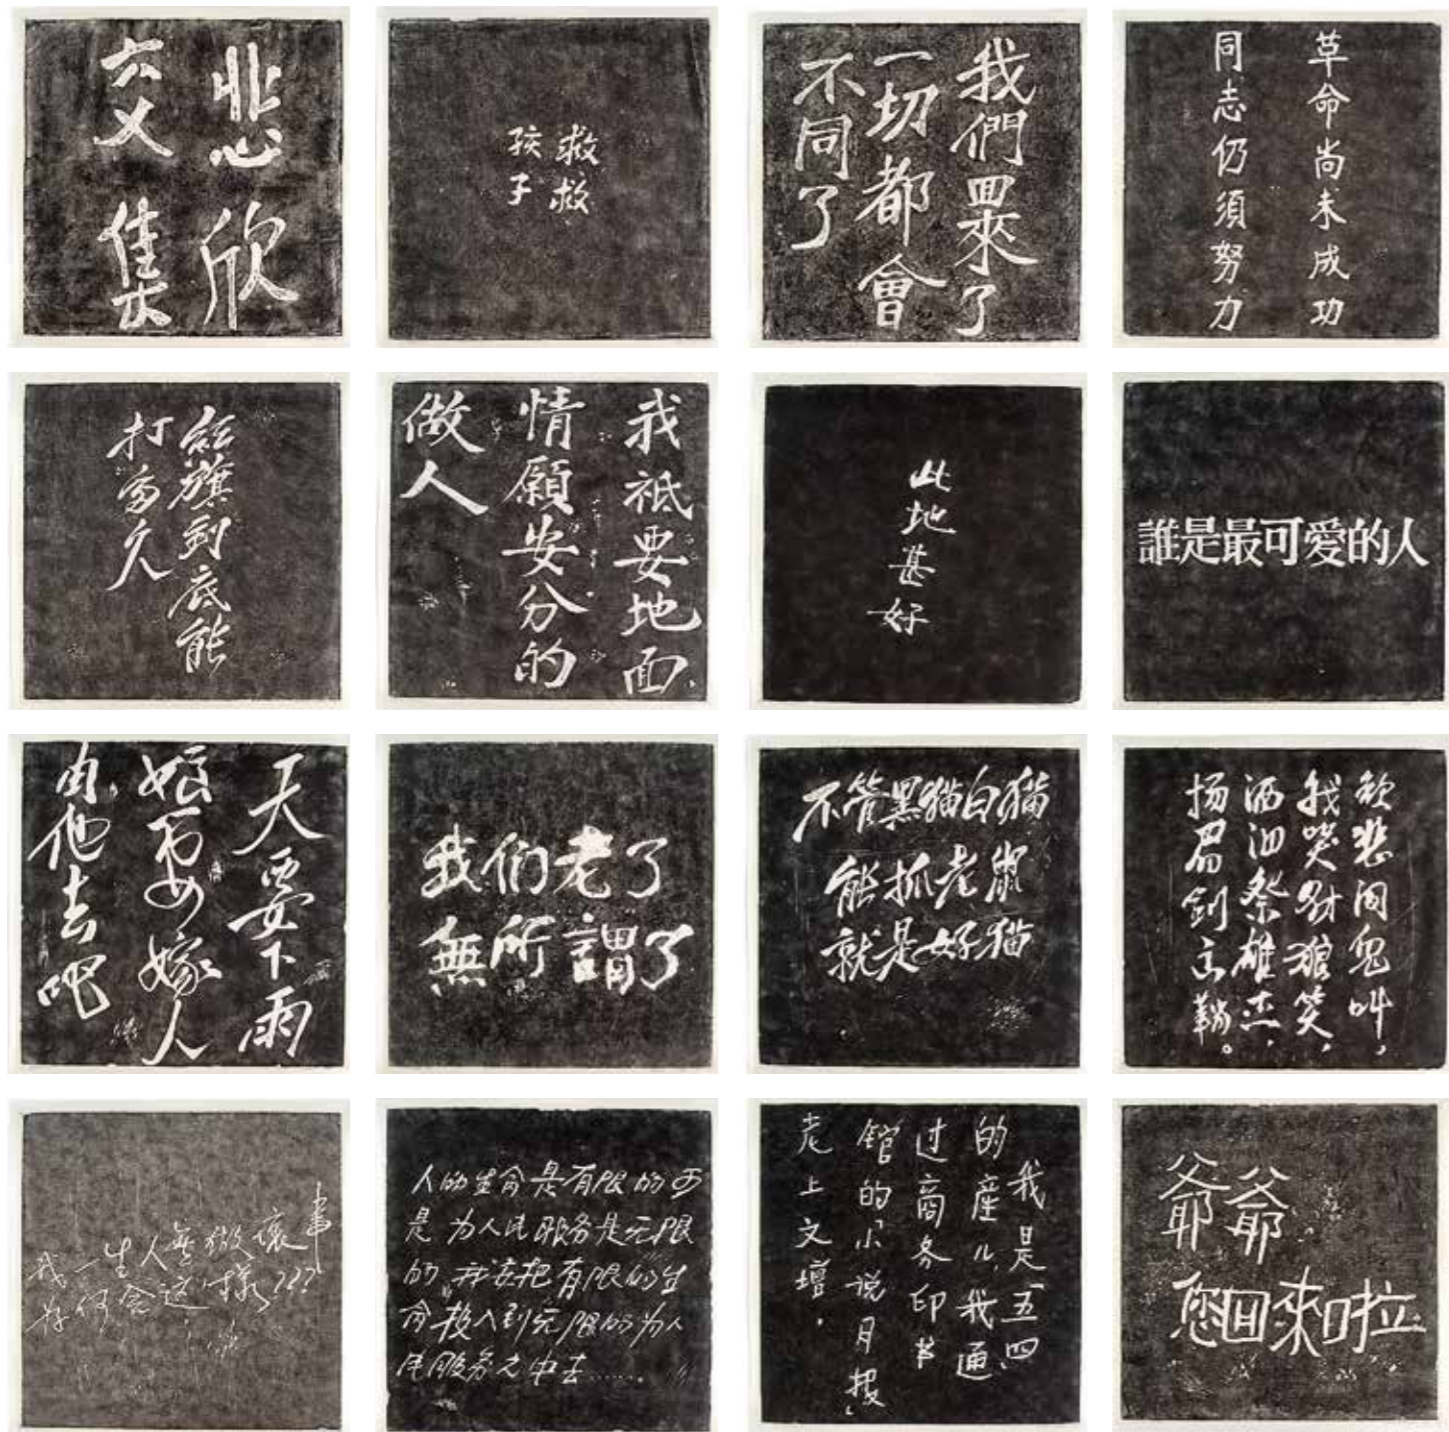 悲欣
交集
救救
孩子
我們回來了
一切都會
不同了
革命尚未成功
同志仍須努力
紅旗到底能
打多久
我祗要地面
情願安分的
做人
此地甚好
誰是最可愛的人
天要下雨
娘要嫁人
由他去吧
我们老了
無所謂了
不管黑猫白猫
能抓老鼠
就是好猫
欲悲闻鬼叫，
我哭豺狼笑，
洒泪祭雄杰，
扬眉剑出鞘。
我一生人無做壞事
为何会这樣???
人的生命是有限的可
是为人民服务是无限
的，我要把有限的生
命投入到无限的为人
民服务之中去……
我是「五四」
的産儿，我通
过商务印书
馆的「小说月报」
走上文壇。
爺爺
您回來啦